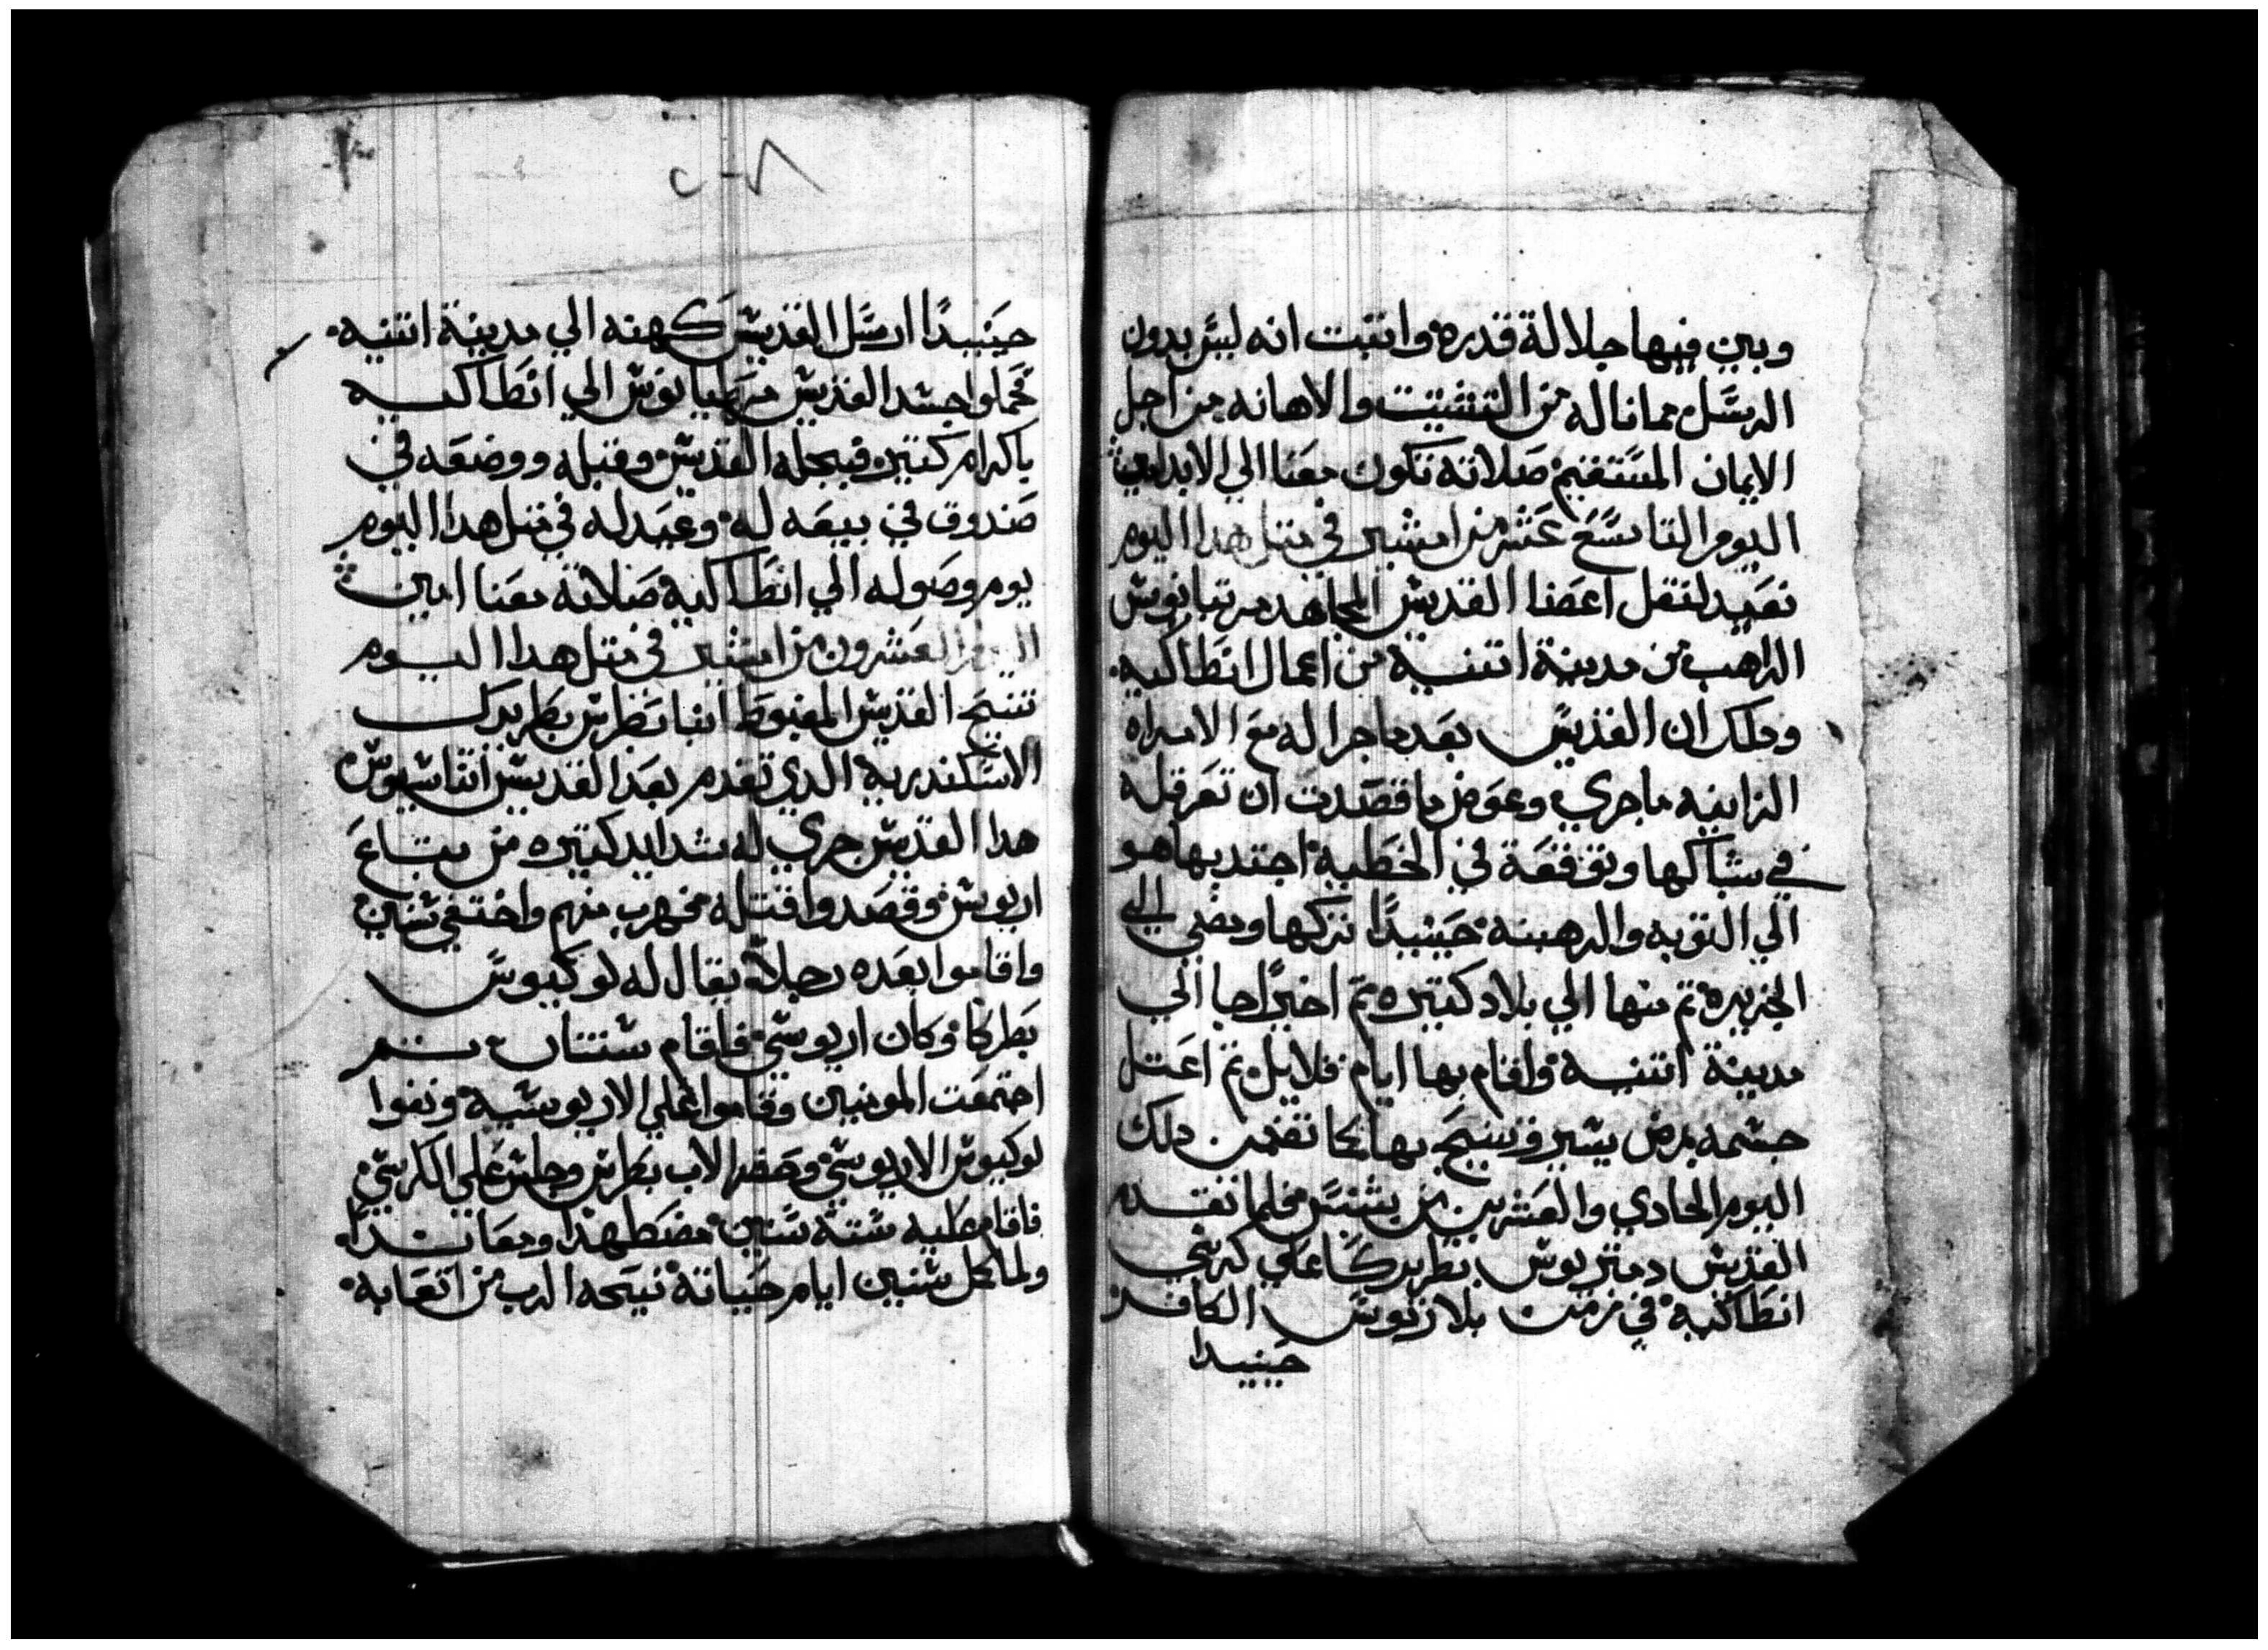 وبين فيها جلالة قدره واتبت انه ليس بدون
الرسل مما ناله من التشتيت والاهانه من اجل
الايمان المستقيم صلاته تكون معنا الي الابد امين
اليوم التاسع عشر من امشير في متل هدا اليوم
نعيد لنقل اعضا القديس المجاهد مرتيانوس
الراهب من مدينة اتنيه من اعمال انطاكيه
ودلك ان القديس بعد ما جرا له مع الامراه
الزانيه ما جري وعوض ما قصدت ان تعرقله
في شباكها وتوقعة في الخطيه اجتدبها هو
الي التوبه والرهبنه حينيدًا تركها ومضي الي
الجزيره تم منها الي بلاد كتيره تم اخيرًا جا الي
مدينة اتنيه واقام بها ايام قلايل تم اعتل
جسمه بمرض يسير وتنيح بها كما تضمن دلك
اليوم الحادي والعشرين من بشنس فلما تقدم
القديس دمتريوس بطريركًا علي كرسي
انطاكيه في زمن بلازيوس الكافر
حينيدا
٢٠٨
حينيدًا ارسل القديس كهنه الي مدينة اتنيه
فحملوا جسد القديس مرتيانوس الي انطاكيه
باكرام كتير فبجله القديس وقبله ووضعه في
صندوق في بيعه له وعيد له في متل هدا اليوم
يوم وصوله الي انطاكيه صلاته معنا امين
اليوم العشرون من امشير في متل هدا اليوم
تنيح القديس المغبوط انبا بطرس بطريرك
الاسكندريه الدي تقدم بعد القديس اتناسيوس
هدا القديس جري له شدايد كتيره من بتاع
اريوس وقصدوا قتله فهرب منهم واختفي سنين
واقاموا بعده رجلاً يقال له لوكيوس
بطركا وكان اريوسي فاقام سنتان تم
اجتمعت المومنين وقاموا علي الاريوسيه ونفوا
لوكيوس الاريوسي وحضر الاب بطرس وجلس علي الكرسي
فاقام عليه سته سنين مضطهدا ومعاندا
ولما كمل سنين ايام حياته نيحه الرب من اتعابه